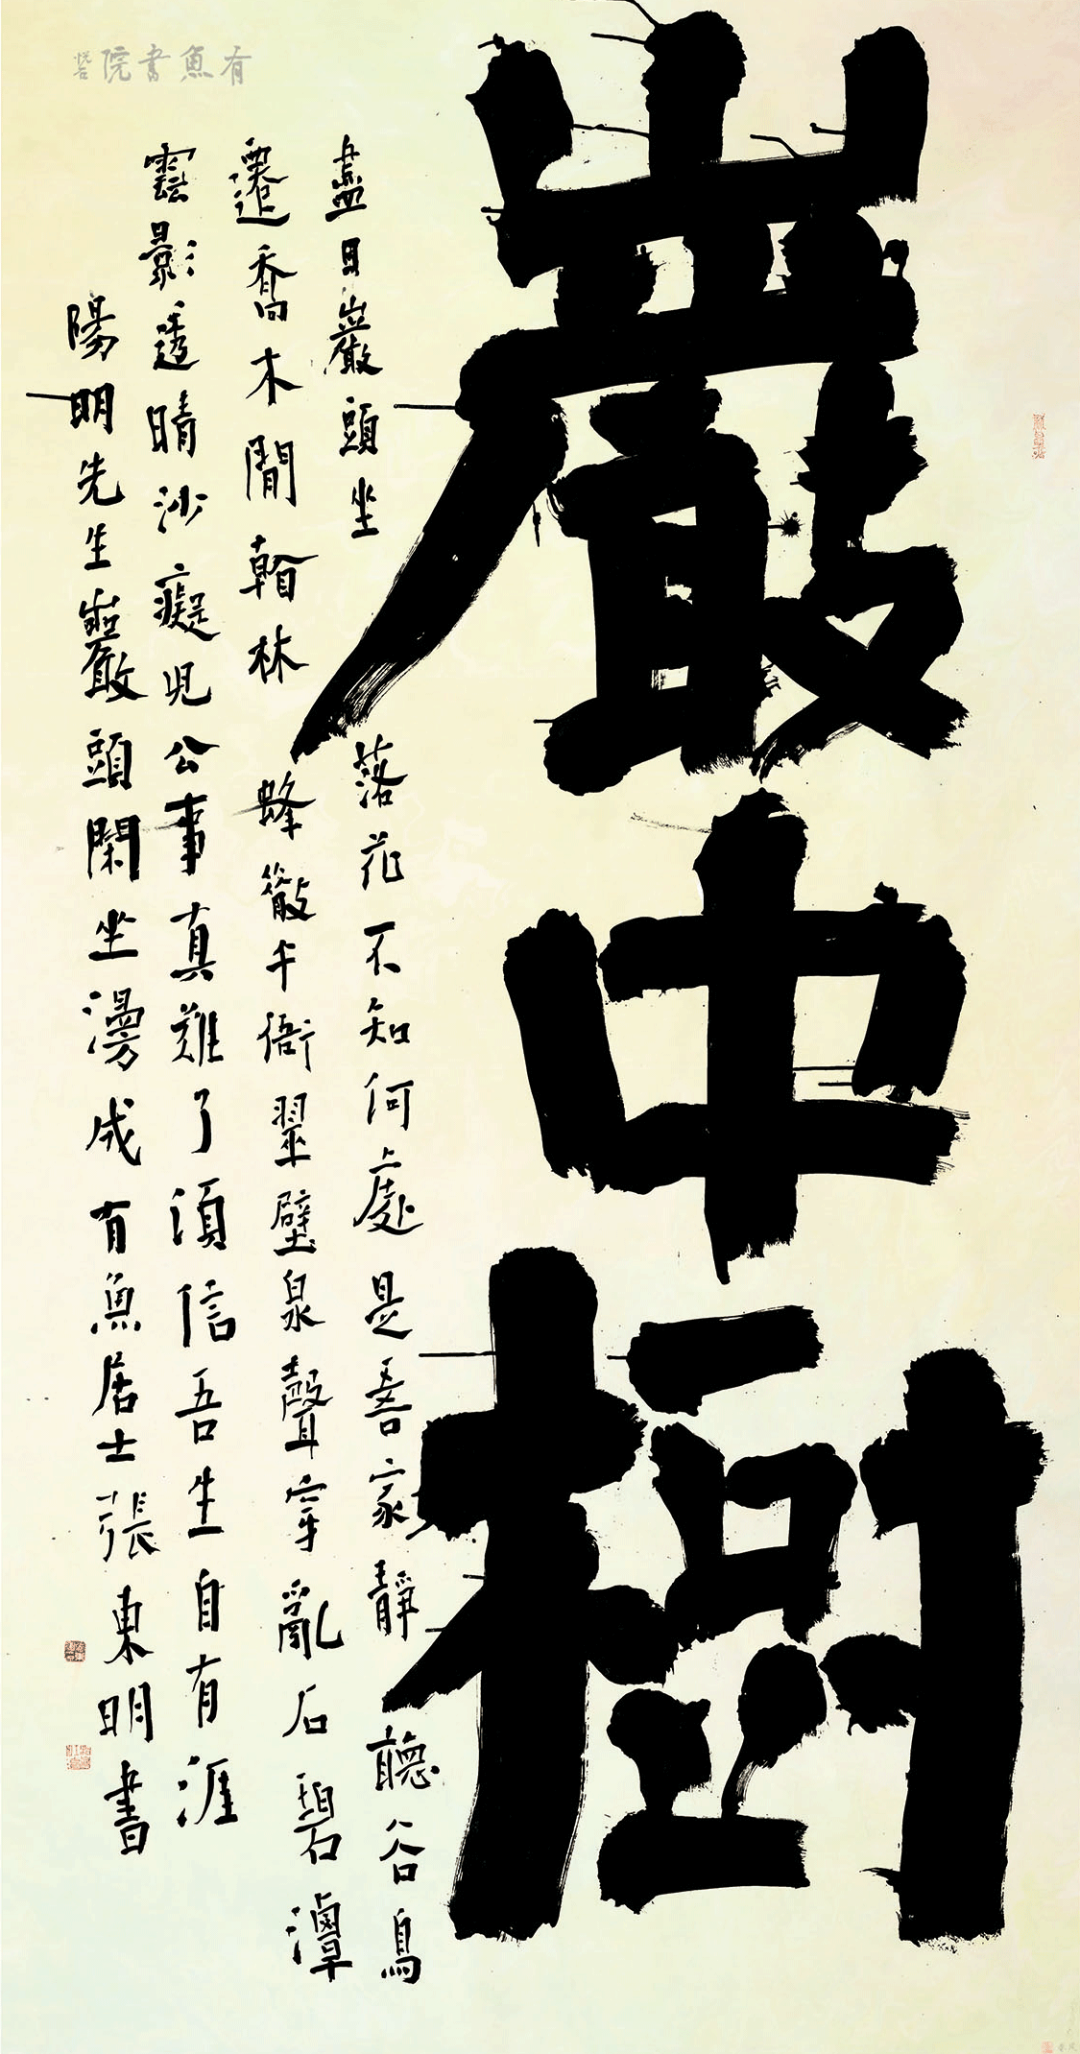 有魚書院
巖中樹
盡日巖頭坐落花不知何處是吾家靜聽谷鳥
遷喬木閒看林蜂散午衙翠壁泉聲穿亂石碧潭
雲影透晴沙癡兒公事真難了須信吾生自有涯
陽明先生巖頭閑坐漫成有魚居士張東明書